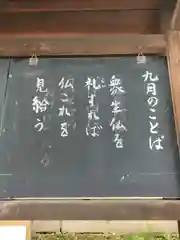 九月のことば
衆生仏を
礼すれば
仏これを
見給う